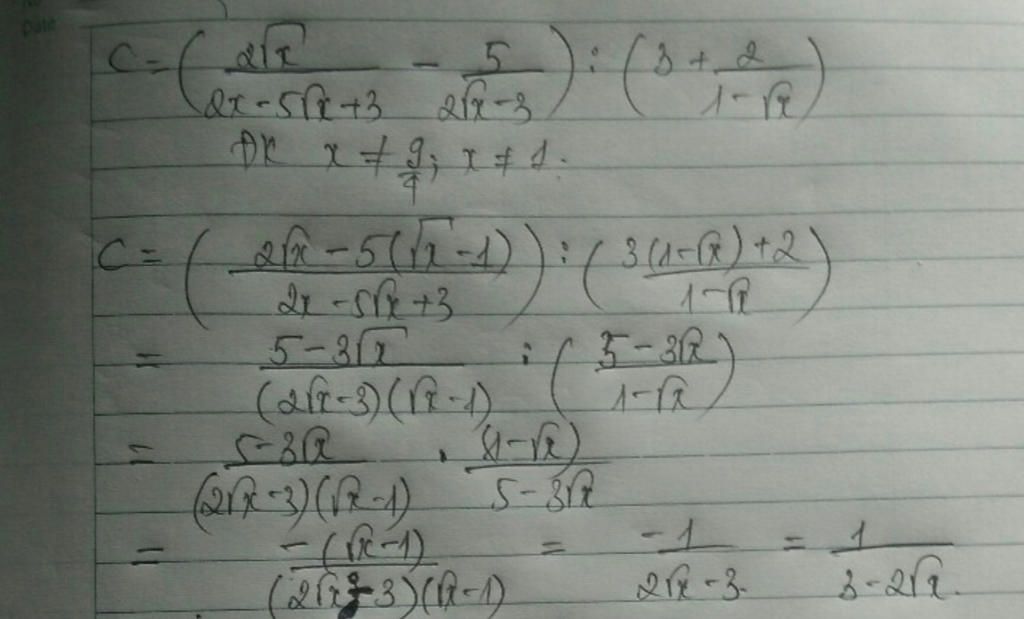 C = (2√x / (2x - 5√x + 3) - 5 / (2√x - 3)) : (3 + 2 / (1 - √x))
ĐK x ≠ 9/4; x ≠ 1.
C = ((2√x - 5(√x - 1)) / (2x - 5√x + 3)) : ((3(1 - √x) + 2) / (1 - √x))
= (5 - 3√x) / ((2√x - 3)(√x - 1)) : ((5 - 3√x) / (1 - √x))
= (5 - 3√x) / ((2√x - 3)(√x - 1)) . (1 - √x) / (5 - 3√x)
= -(√x - 1) / ((2√x - 3)(√x - 1)) = -1 / (2√x - 3) = 1 / (3 - 2√x).